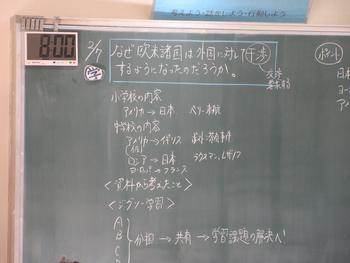 考えよう・話そう・行動しよう
8:00
2/7
学
なぜ欧米諸国は外国に対して干渉
するようになったのだろうか。
交渉
要求する
ポイント
小学校の内容
アメリカ→日本 ペリー来航
中学校の内容
アメリカ→イギリス
ロシア→日本 ラクスマン、レザノフ
ヨーロッパ→フランス
<資料から考えたこと>
<ジグソー学習>
A
B
C
分担→共有→学習課題の解決へ!